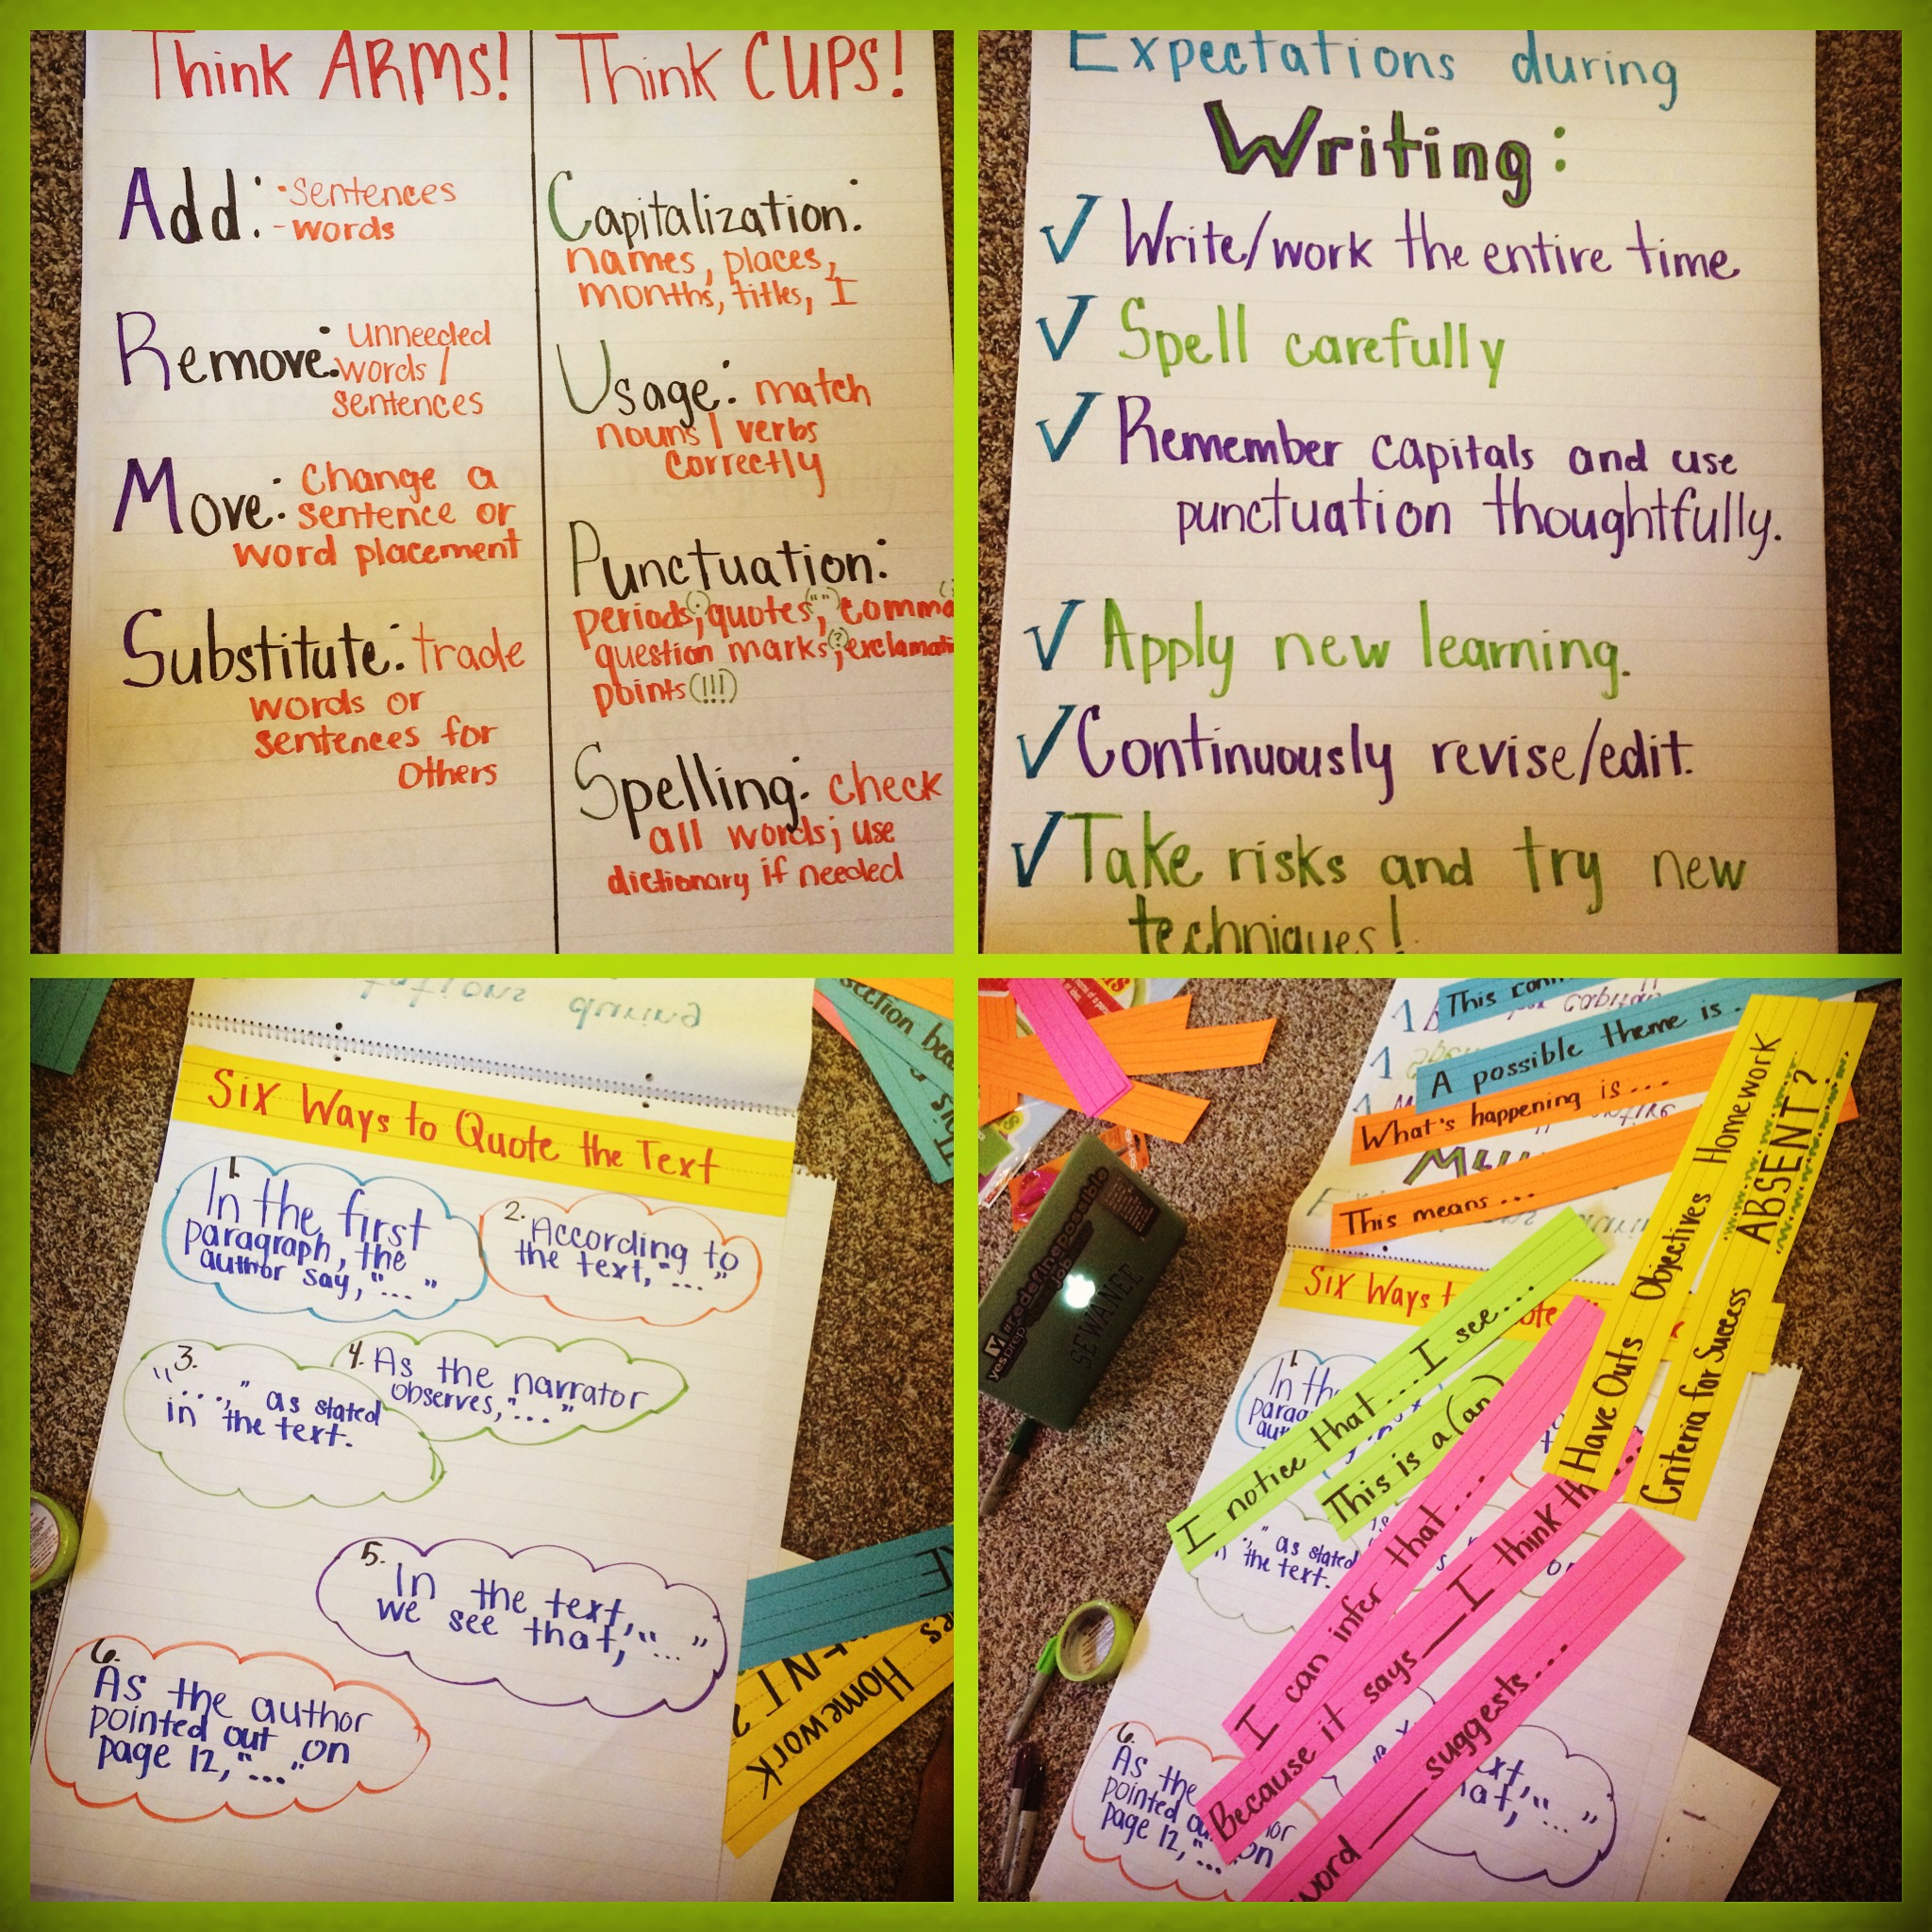 Think ARMS!
Add: - Sentences
- words
Remove: Unneeded
words/
sentences
Move: Change a
sentence or
word placement
Substitute: trade
words or
sentences for
others
Think CUPS!
Capitalization:
names, places,
months, titles, I
Usage: match
nouns/verbs
correctly
Punctuation:
periods(.), quotes(" "), comma
question marks(?), exclamati
points (!!!)
Spelling: check
all words; use
dictionary if needed
Expectations during
Writing:
✓ Write/work the entire time
✓ Spell carefully
✓ Remember capitals and use
punctuation thoughtfully.
✓ Apply new learning.
✓ Continuously revise/edit.
✓ Take risks and try new
techniques!
during
section
This
Six Ways to Quote the Text
1.
In the first
paragraph, the
author say, "..."
2. According to
the text, "..."
3.
"...," as stated
in the text.
4. As the narrator
observes, "..."
5.
In the text,
we see that, "..."
6.
As the author
pointed out on
page 12, "..."
Homework
This
A possible theme is..
What's happening is...
This means...
Six Ways
I notice that... I see...
This is a (an)
I can infer that...
Because it says ___ I think th
word ___ suggests...
Have Outs Objectives Homework
Criteria for Success ABSENT?
In the
" as stated
the text.
6.
As the
pointed
page 12, "..." on
yesprep
redefinepossible
SEWANEE